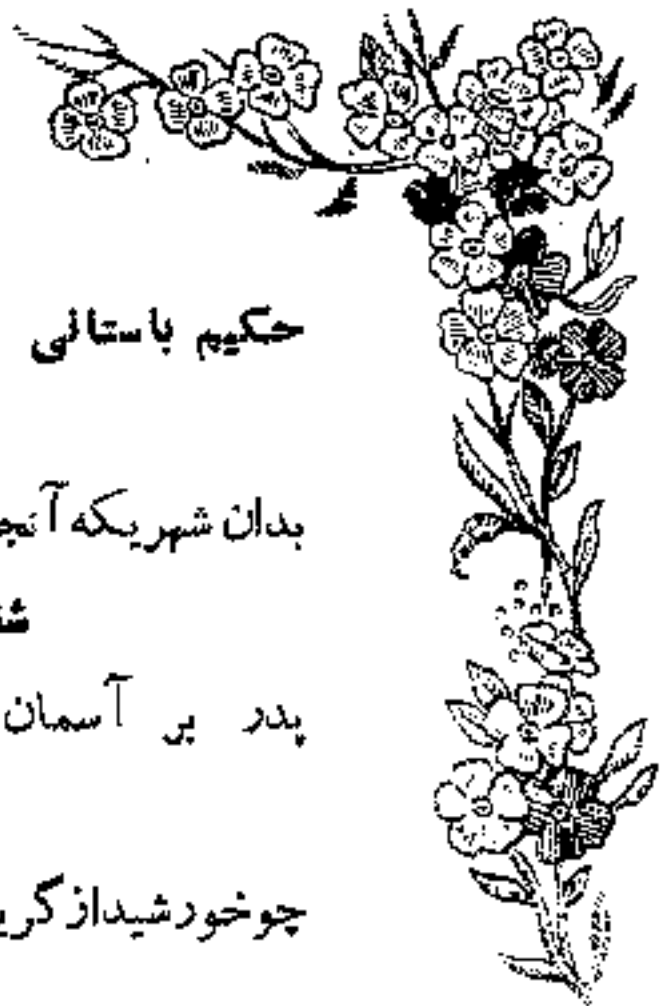 حکیم باستانی
بدان شهریکه آنج
شن
پدر بر آسمان
چو خورشید از گری